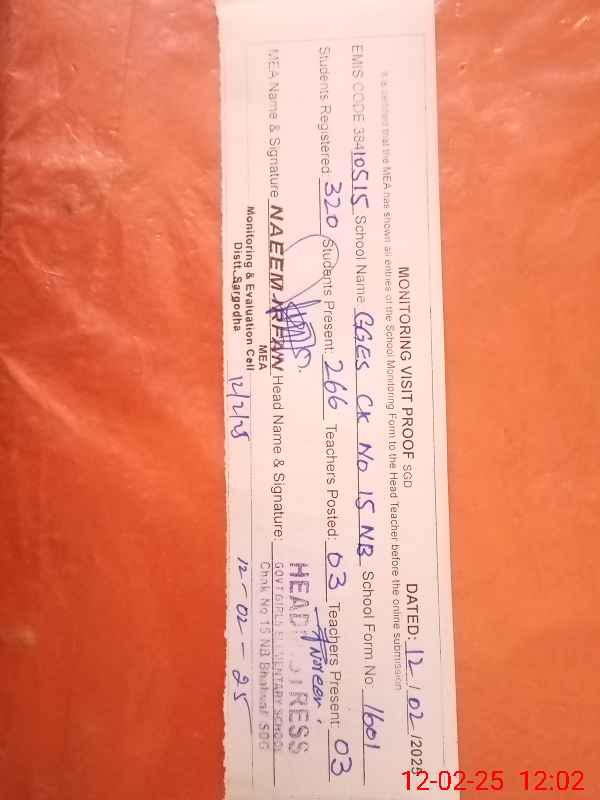 MONITORING VISIT PROOF SGD DATED: 12/02/2025
It is certified that the MEA has shown all entries of the School Monitoring Form to the Head Teacher before the online submission
EMIS CODE 38410515 School Name GGES CK No 15 NB School Form No. 1601
Students Registered: 320 Students Present: 266 Teachers Posted: 03 Teachers Present: 03
MEA Name & Signature NAEEM IRFAN Head Name & Signature:
MEA
Monitoring & Evaluation Cell
Distt. Sargodha
12/2/25
HEADMISTRESS
GOVT GIRLS ELEMENTARY SCHOOL
Chak No 15 NB Bhalwal SGD
12-02-25
12-02-25 12:02